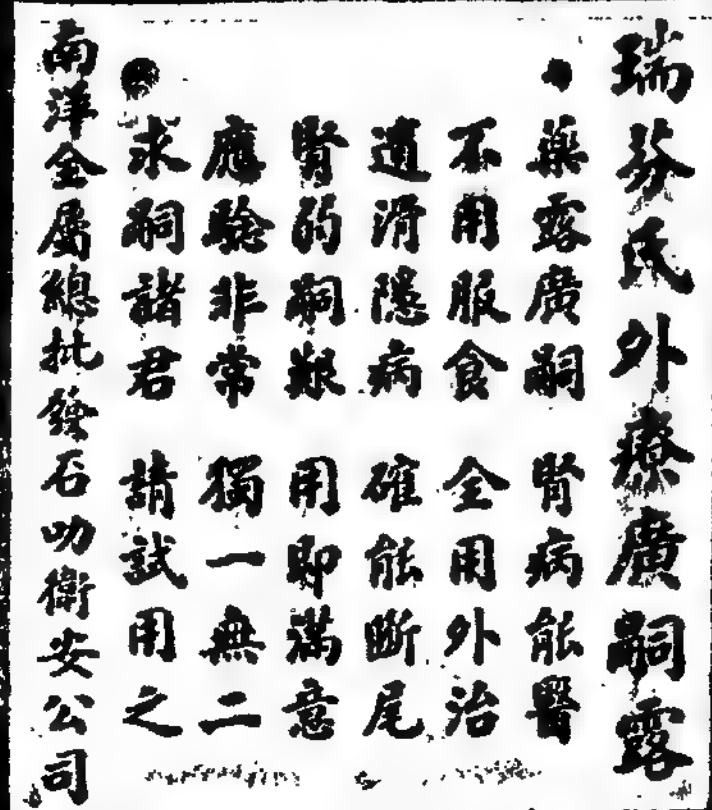 瑞芬氏外療廣嗣露
藥露廣嗣 腎病能醫
不用服食 全用外治
遺滑隱病 確能斷尾
腎弱嗣艱 用即滿意
應驗非常 獨一無二
求嗣諸君 請試用之
南洋全屬總批發石叻衛安公司